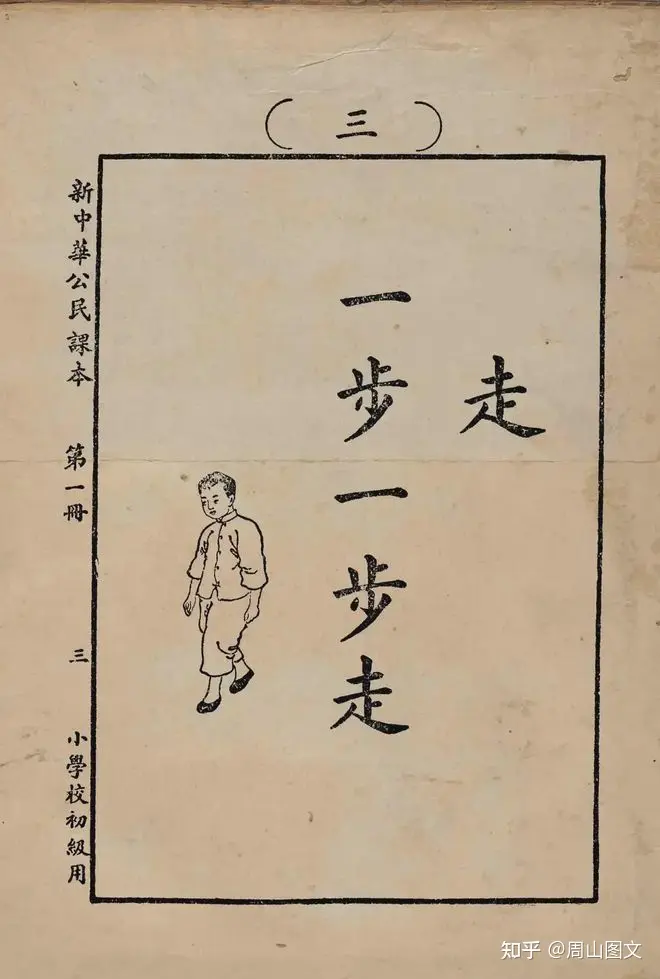 (三)
走
一步一步走
新中華公民課本 第一冊 三 小學校初級用
知乎 @周山图文